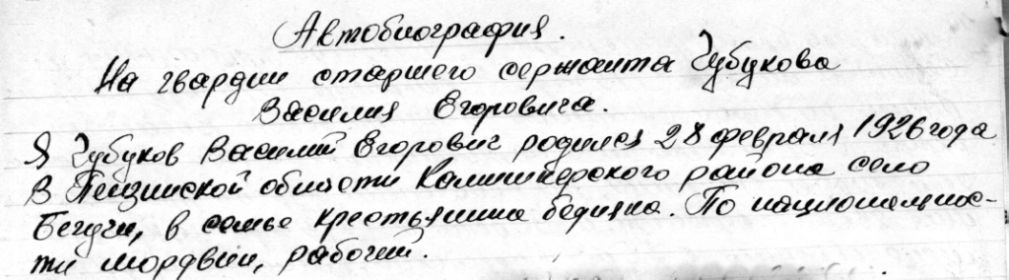 Автобиография.
На гвардии старшего сержанта Чубукова
Василия Егоровича.
Я Чубуков Василий Егорович родился 28 февраля 1926 года
В Пензинской области Камешкерского района село
Бегучи, в семье крестьянина бедняка. По националнос-
ти мордвин, рабочий.